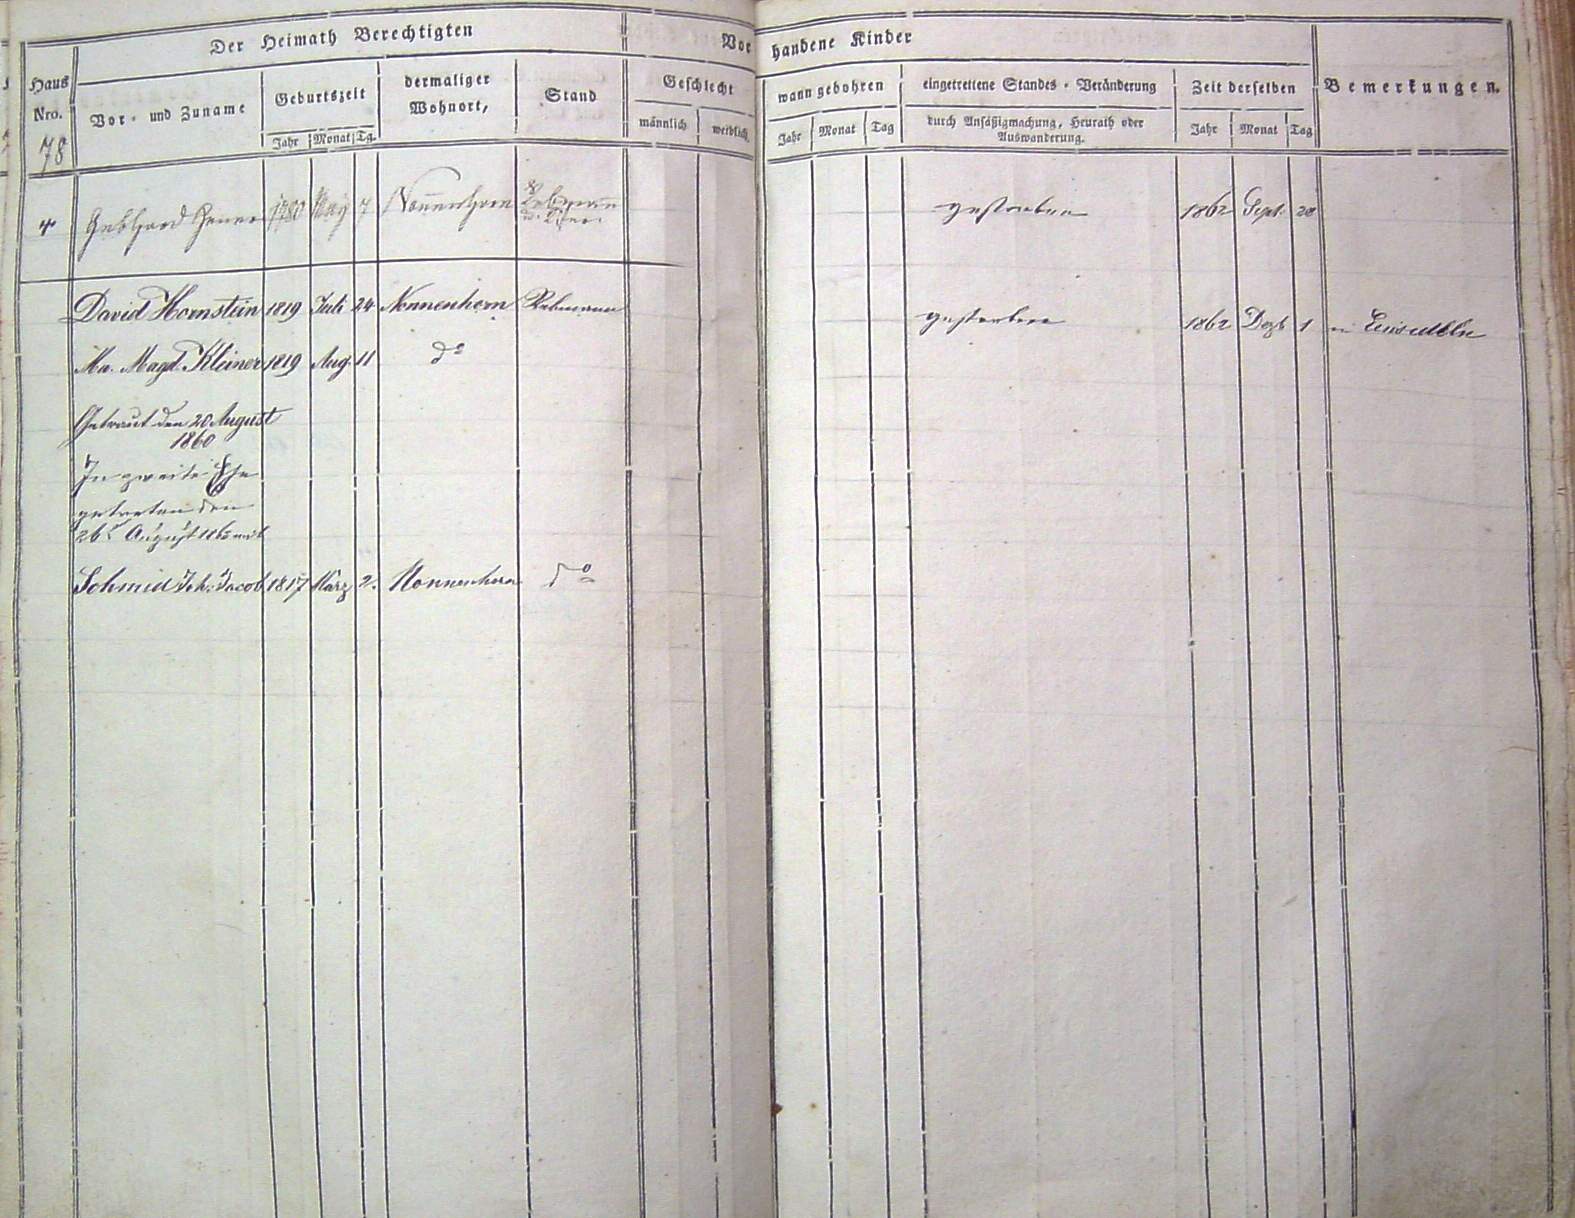 Der Heimath Berechtigten
Vorhandene Kinder
Haus Nro.
Vor- und Zuname
Geburtszeit
dermaliger Wohnort,
Stand
Geschlecht
wann gebohren
eingetrettene Standes-Veränderung
Zeit derselben
Bemerkungen.
Jahr Monat Tg.
männlich weiblich
Jahr Monat Tag
durch Ansäßigmachung, Heurath oder
Auswanderung.
Jahr Monat Tag
78
Gebhard 1780 May 7 Nonnenhorn gestorben 1862 Sept. 28
David Hornstein 1819 Juli 24 Nonnenhorn Rebmann gestorben 1862 Dezb 1 in Einsiedeln
Ma. Magd. Kleiner 1819 Aug. 11 do
Getraut den 20 August
1860
In zweite Ehe
getreten den
26t August mit
Schmid Joh. Jacob 1817 März 2. Nonnenhorn do